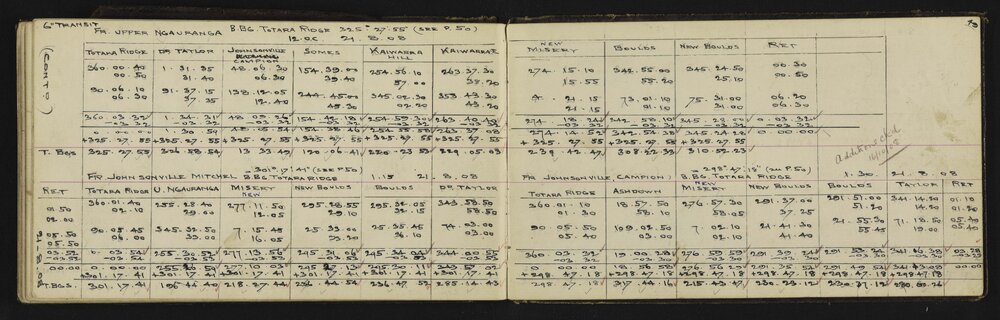 6" TRANSIT
FR. UPPER NGAURANGA B.BG. TOTARA RIDGE 325° 27' 55" (SEE P. 50)
12.0.C. 21. 8. 08
(CONTD)
TOTARA RIDGE DR TAYLOR JOHNSONVILLE CAMPION SOMES KAIWARRA HILL KAIWARRA
360.00.40 1.31.35 48.06.30 154.39.00 254.56.10 263.37.30
00.50 31.40 06.30 39.40 57.00 38.20
90.06.10 91.37.15 138.12.05 244.45.00 345.02.30 353.43.30
06.30 37.35 12.40 45.30 02.20 43.20
360.03.32 1.34.31 48.09.26 154.42.18 254.59.30 263.40.40
03.32 03.32 03.32 03.32 03.32
0.00.00 1.30.59 48.05.54 154.38.46 254.55.58 263.37.08
+325.27.55 +325.27.55 +325.27.55 +325.27.55 +325.27.55 +325.27.55
T. BGS 325.27.55 326.58.54 13.33.49 120.06.41 220.23.53 229.05.03
FR JOHNSONVILLE MITCHEL 301° 17' 41" (SEE P 50) B.BG TOTARA RIDGE 1.15 21. 8. 08
RET TOTARA RIDGE U. NGAURANGA NEW MISERY NEW BOULDS BOULDS DR. TAYLOR
360.01.40 255.28.40 277.11.50 295.28.55 295.32.05 343.58.50
01.50 02.10 29.00 12.05 29.10 32.15 58.50
02.00
90.05.45 345.32.50 7.15.45 25.33.00 25.35.45 74.03.00
05.50 06.00 33.00 16.05 33.20 36.10 03.00
05.50
03.52 0.03.54 255.30.52 277.13.56 295.31.06 295.34.04 344.00.55
03.52 03.52 03.52 03.52
00.00 0.00.00 277.10.03 295.30.11
+301.17.41 +301.17.41 +301.17.41
T.BGS. 301.17.41 196.44.40 218.27.44 236.44.54 236.47.52 285.14.43
21-8-08
49
NEW MISERY BOULDS NEW BOULDS RET
274.15.10 342.55.00 345.24.50 00.30
15.55 55.20 25.10 00.50
4.21.15 73.01.10 75.31.00 06.20
21.15 01.10 31.00 06.30
274.18.24 342.58.10 345.28.00 0.03.32
03.32 03.32 03.32 03.32
274.14.52 342.54.38 345.24.28 0.00.00
+325.27.55 +325.27.55 +325.27.55
239.42.47 308.22.33 310.52.23
Additions ch'd
16/10/08
FR JOHNSONVILLE (CAMPION) 298° 47' 18" (SEE P. 50) B.BG. TOTARA RIDGE 1.30. 21. 8. 08
TOTARA RIDGE ASHDOWN NEW MISERY NEW BOULDS BOULDS TAYLOR RET
360.01.10 18.57.50 276.57.30 291.37.00 291.51.00 341.14.20 01.10
01.30 58.10 58.05 37.25 51.20 14.20 01.20
90.05.50 109.02.50 7.02.10 21.41.30 21.55.30 71.18.50 05.40
05.40 03.00 02.10 41.40 55.40 19.00 05.50
360.03.32 19.00.28 276.59.59 291.39.24 341.16.38 03.28
03.30 03.30
0.00.00 18.56.58 276.56.29 291.35.52 00.00
+298.47.18 +298.47.18 +298.47.18 +298.47.18 +298.47.18 +298.47.18
298.47.18 317.44.16 215.43.47 230.23.12 230.37.12 280.00.26